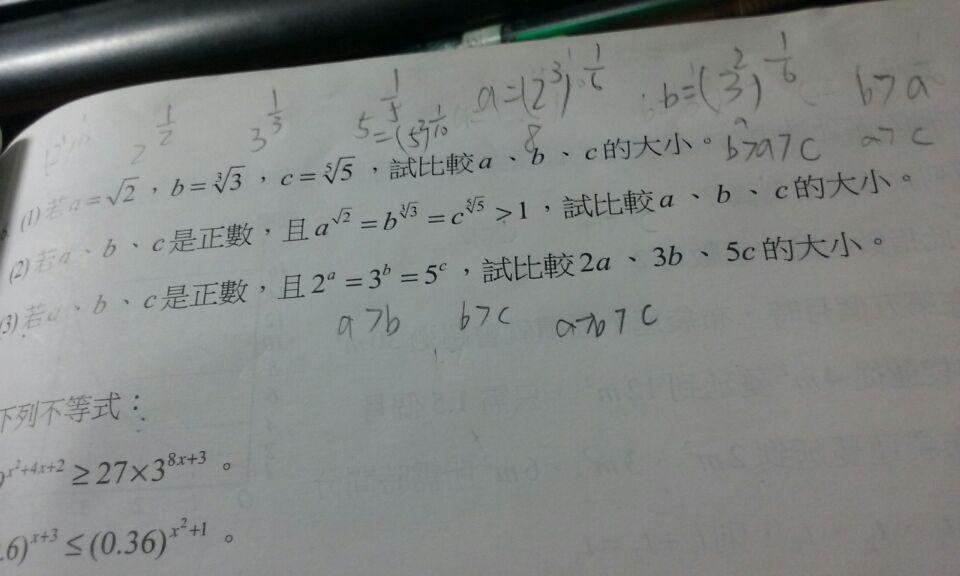 2^{\frac{1}{2}} 3^{\frac{1}{3}} 5^{\frac{1}{5}} = (5^2)^{\frac{1}{10}} a=(2^3)^{\frac{1}{6}} b=(3^2)^{\frac{1}{6}} b>a
8 9 b>a>c a>c
(1) 若a=√2，b=∛3，c=⁵√5，試比較a、b、c的大小。
(2) 若a、b、c是正數，且a^{√2}=b^{∛3}=c^{⁵√5}>1，試比較a、b、c的大小。
(3) 若a、b、c是正數，且2^a=3^b=5^c，試比較2a、3b、5c的大小。
a>b b>c a>b>c
下列不等式：
^{x²+4x+2}≥27×3^{8x+3}。
.6)^{x+3}≤(0.36)^{x²+1}。